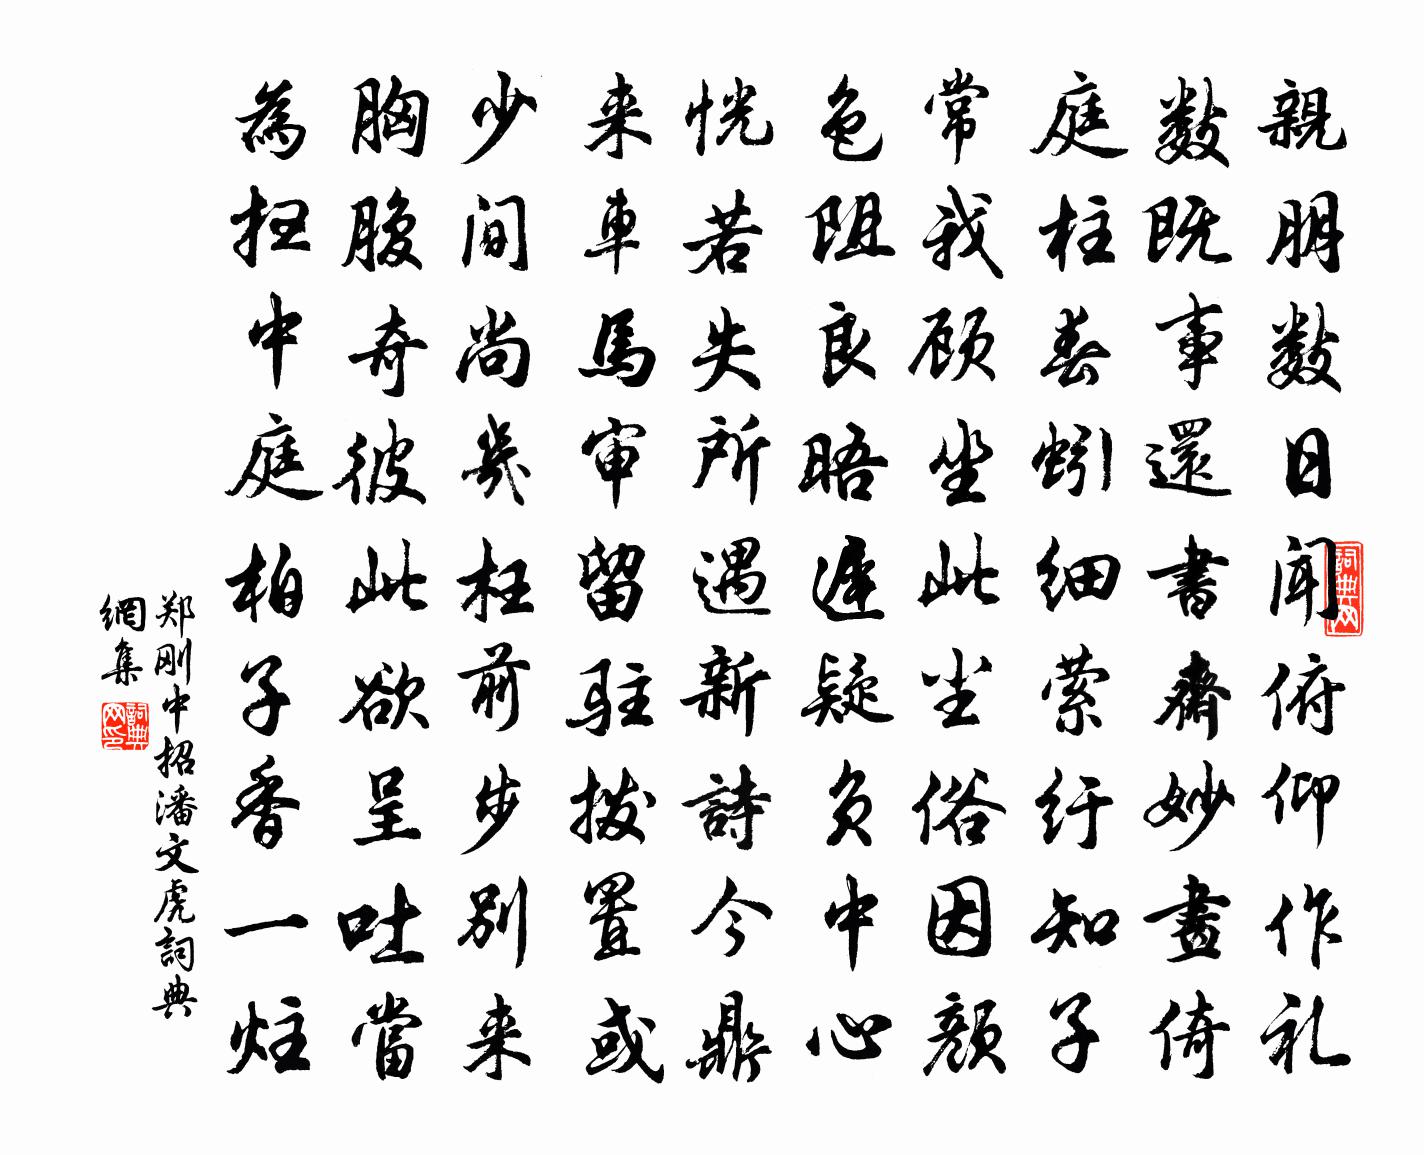 親朋數日闻俯仰作礼
數既事還書齋妙畫倚
庭柱春蚓细萦纡知子
常我顾坐此坐俗因颜
色阻良晤遲疑负中心
恍若失所遇新詩今鼎
来車馬审留驻拨置或
少间尚幾枉前步别来
胸腹奇彼此欲呈吐當
為扫中庭柏子香一炷
郑刚中招潘文虎詞典
網集
詞典网
詞典网